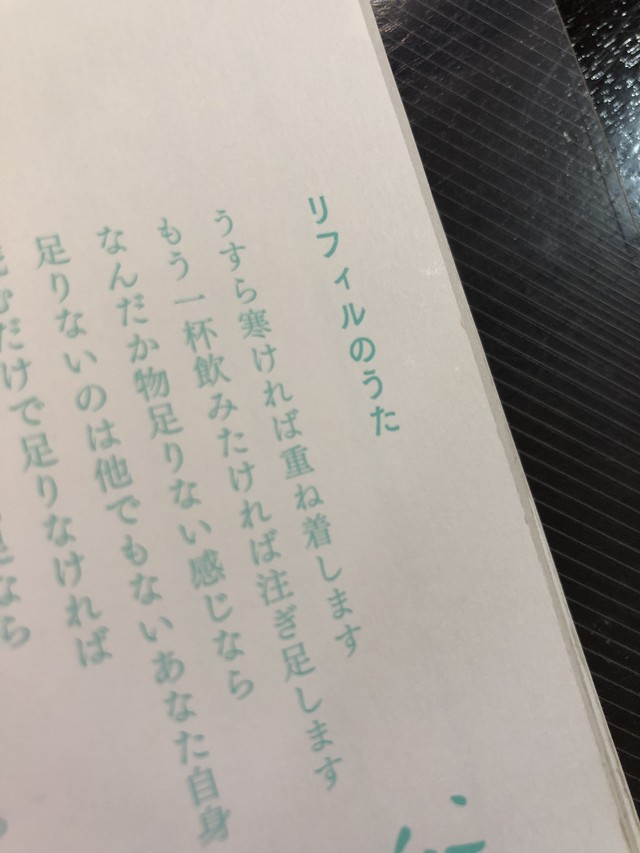 リフィルのうた
うすら寒ければ重ね着します
もう一杯飲みたければ注ぎ足します
なんだか物足りない感じなら
足りないのは他でもないあなた自身
だけで足りなければ
なら